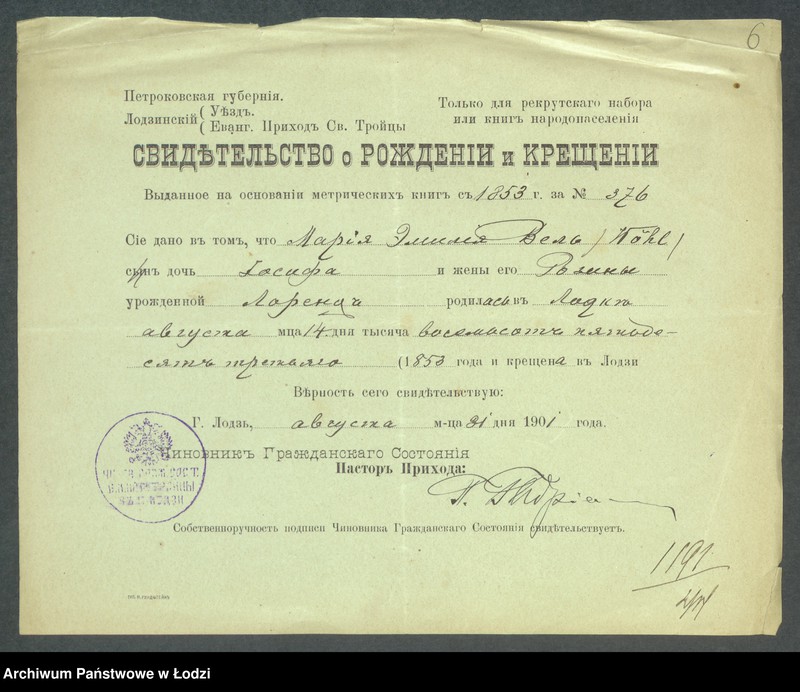 6
Петроковская губернія.
Лодзинскій ( Уѣздъ.
( Еванг. Приходъ Св. Тройцы
Только для рекрутскаго набора
или книгъ народонаселенія
СВИДѢТЕЛЬСТВО о РОЖДЕНІИ и КРЕЩЕНІИ
Выданное на основаніи метрическихъ книгъ съ 1853 г. за № 376
Сіе дано въ томъ, что Марія Эмилія Вель / Wöhl /
сынъ дочь Іосифа и жены его Розины
урожденной Лоренцъ родилась въ Лодзи
августа мца 14 дня тысяча восемьсотъ пятьде-
сятъ третьяго (1853 года и крещена въ Лодзи
Вѣрность сего свидѣтельствую:
Г. Лодзь, августа м-ца 21 дня 1901 года.
Чиновникъ Гражданскаго Состоянія
Пасторъ Прихода:
Собственноручность подписи Чиновника Гражданскаго Состоянія свидѣтельствуетъ.
1191
Archiwum Państwowe w Łodzi